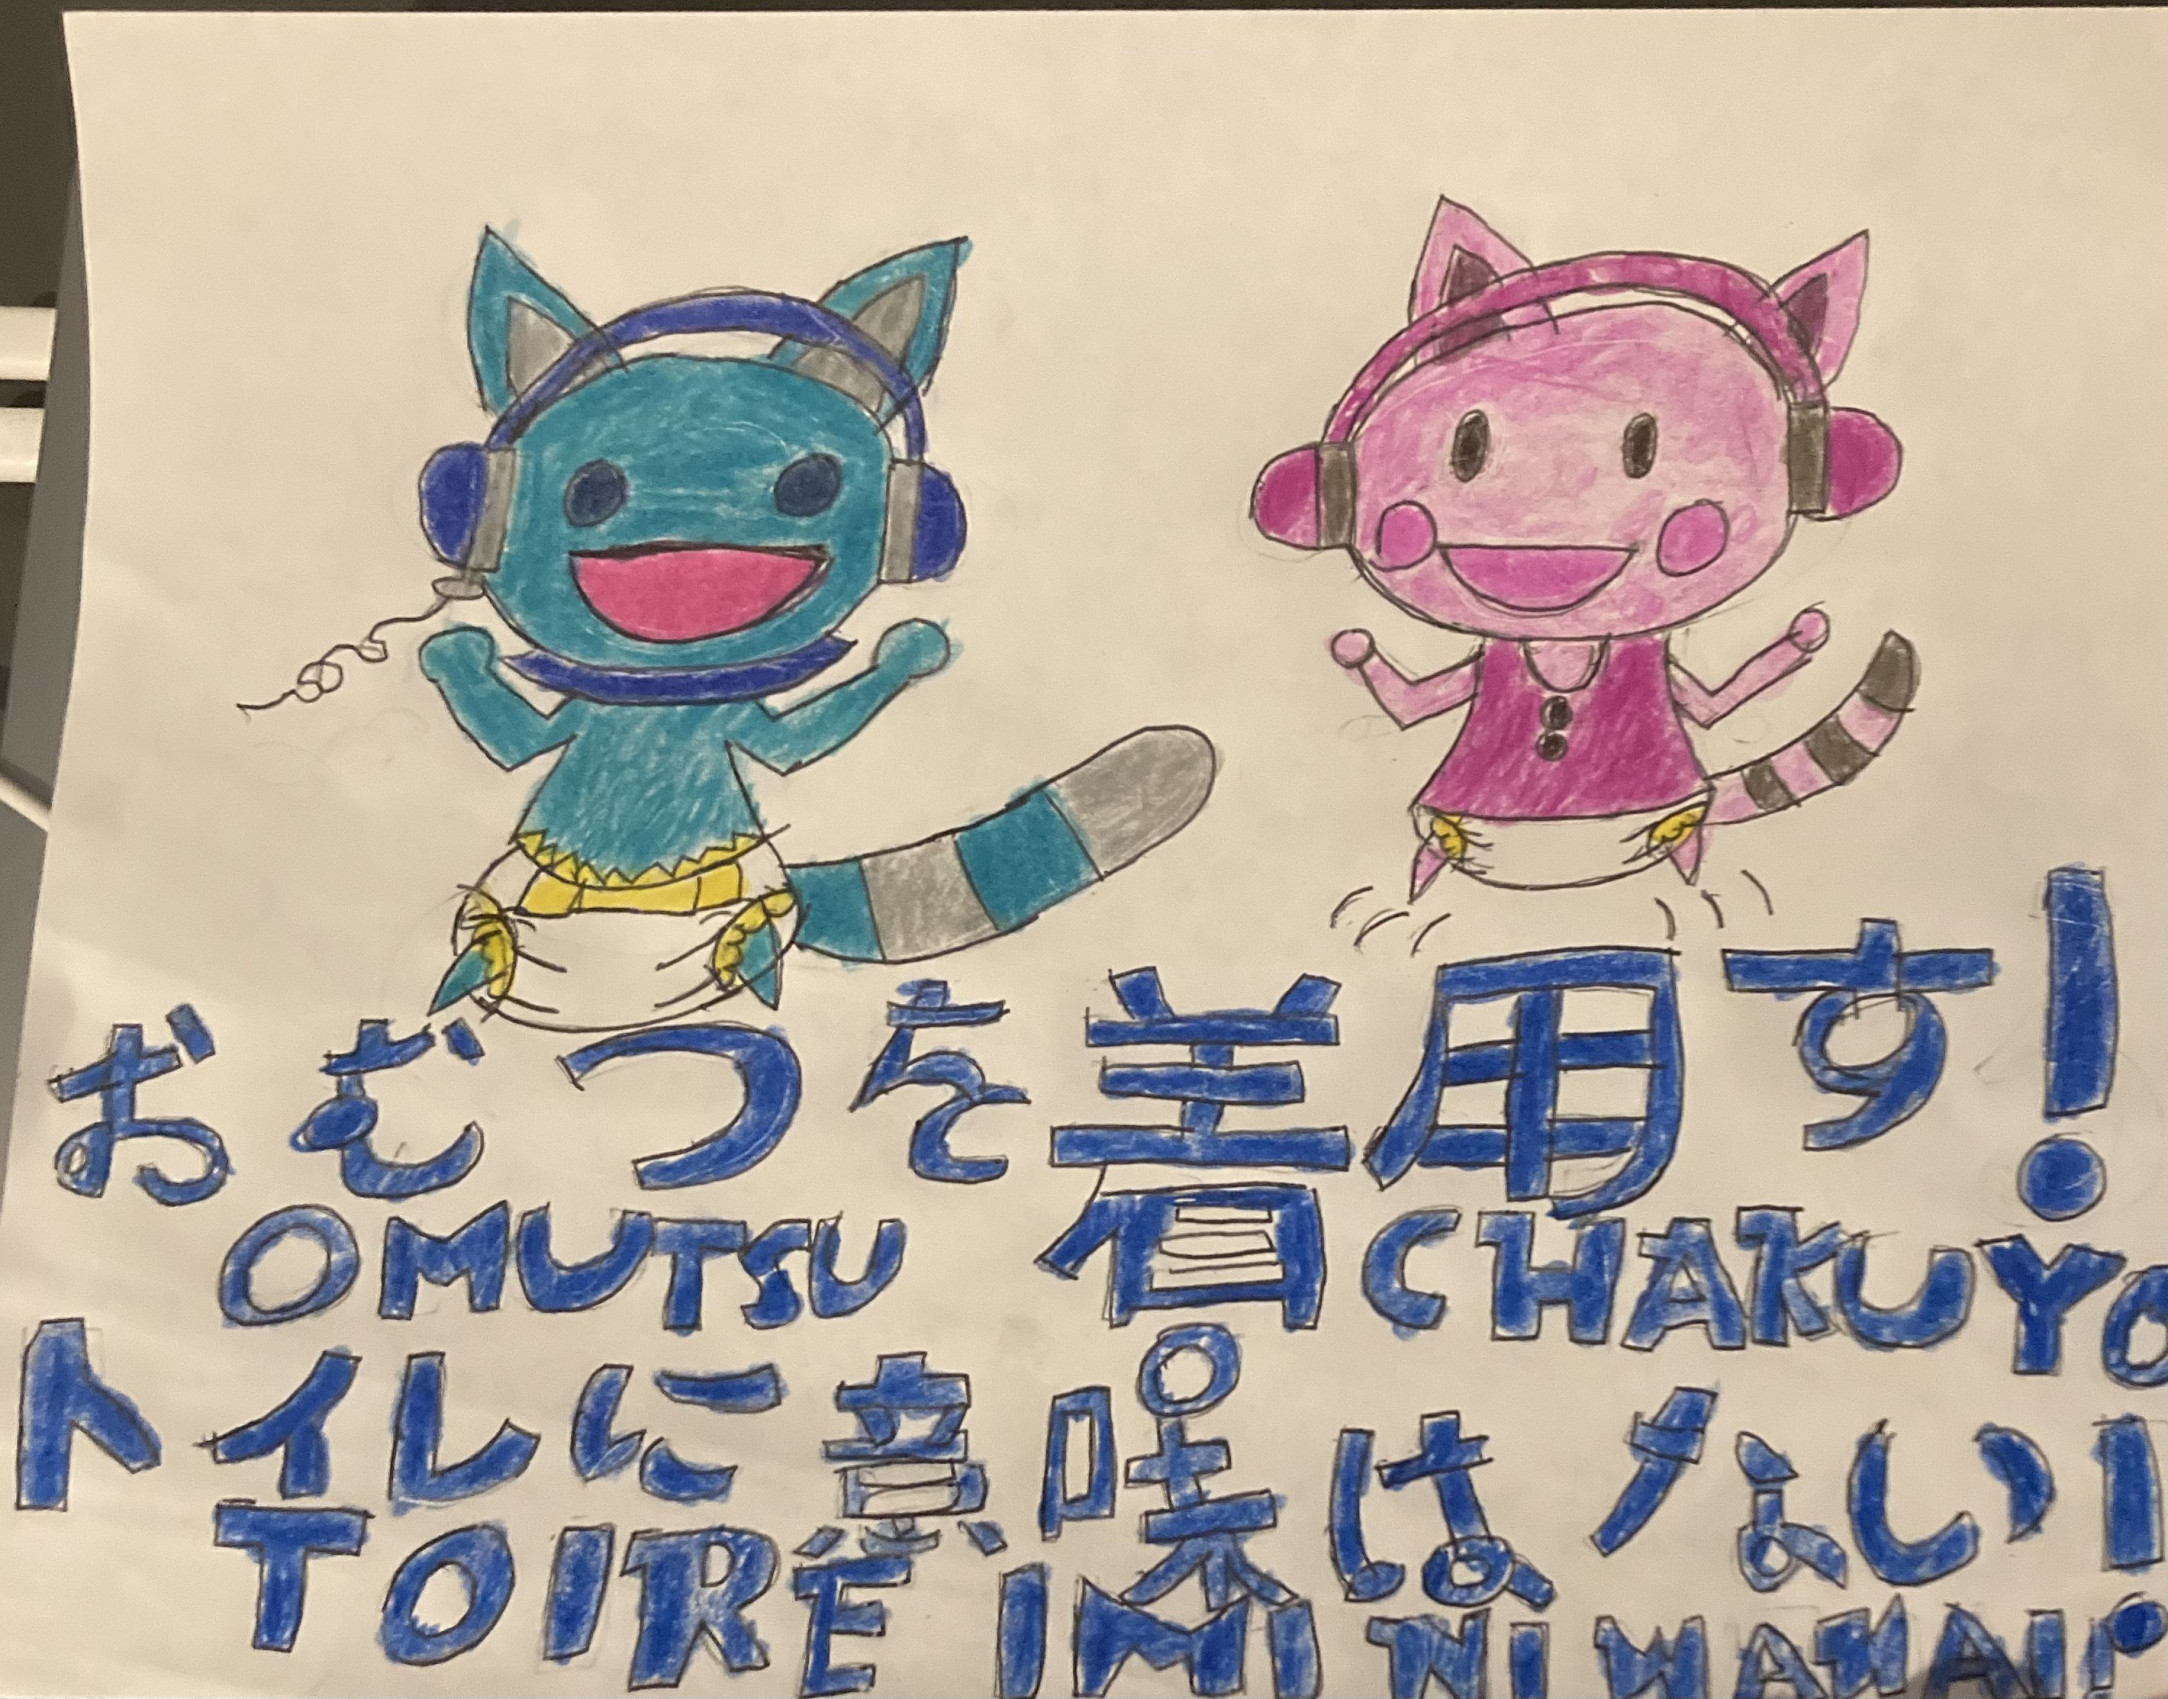 おむつを着用す!
OMUTSU CHAKUYO
トイレに意味はない!
TOIRE IMI NI WANAI!